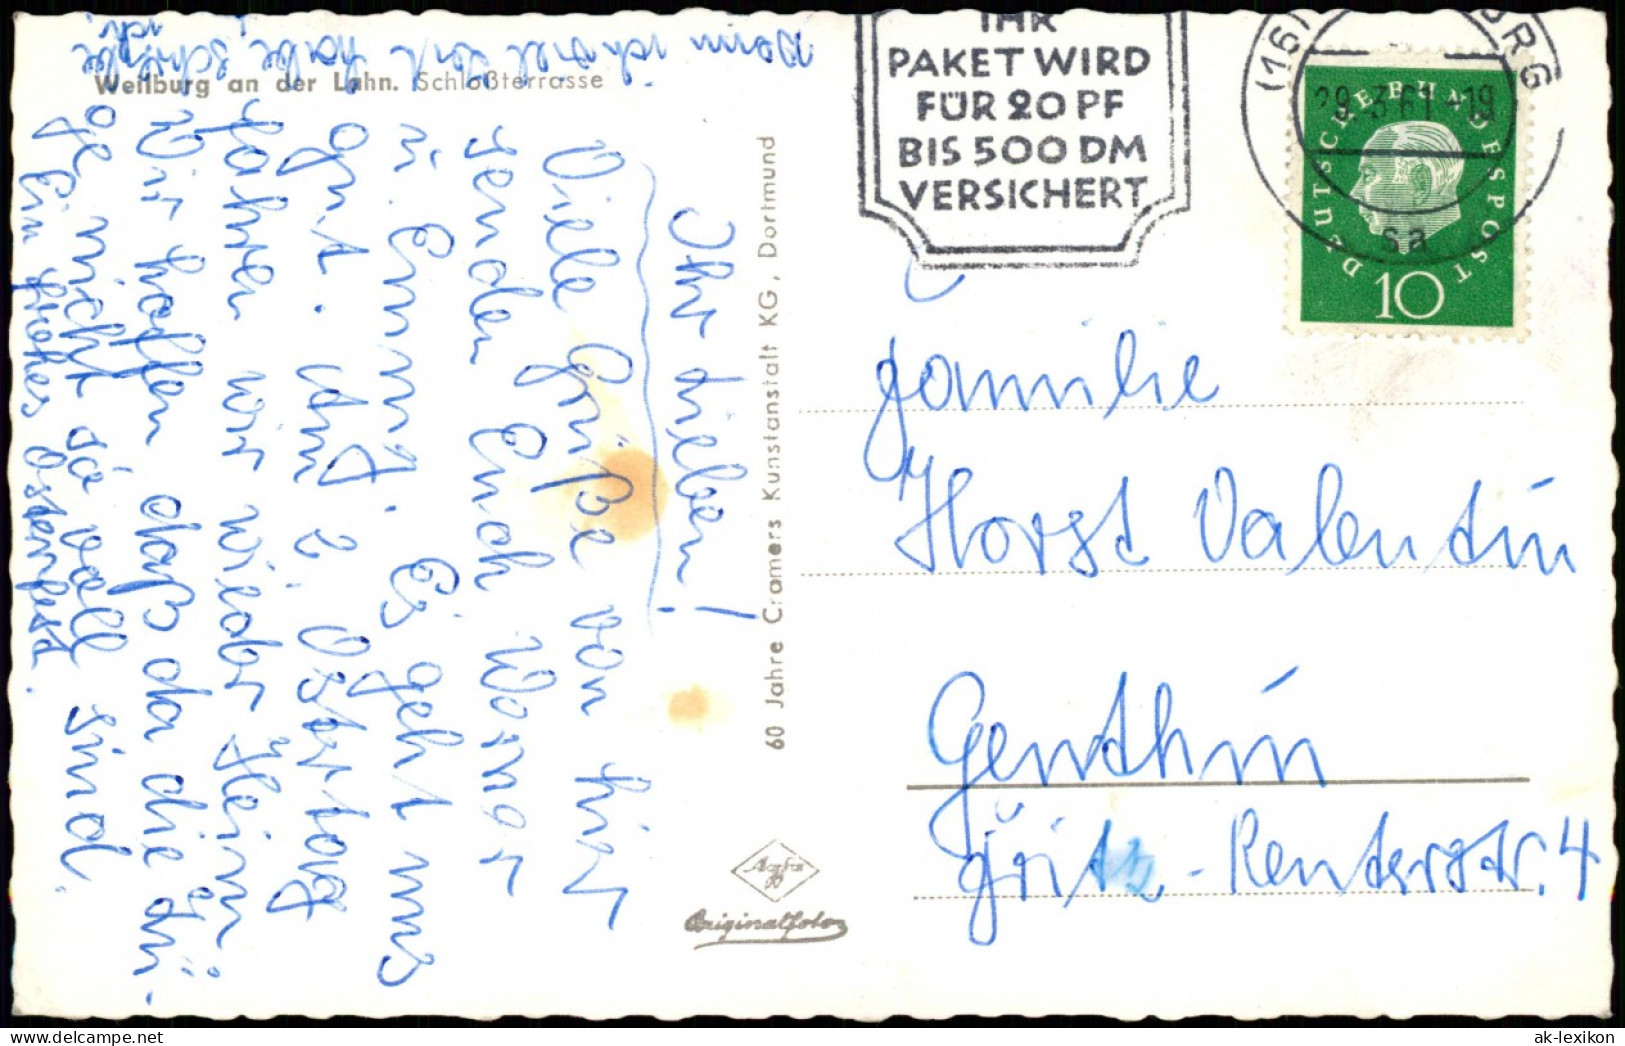 Weilburg an der Lahn. Schloßterrasse
Wenn ich viel Zeit habe, schreibe
ich
Ihr Lieben!
Viele Grüße von hier
senden Euch Werner
u. Emmy. Es geht uns
gut. Am 2. Ostertag
fahren wir wieder Heim
Wir hoffen daß da die Zü-
ge nicht so voll sind.
Ein frohes Osterfest.
60 Jahre Cramers Kunstanstalt KG, Dortmund
Agfa
Originalfoto
IHR
PAKET WIRD
FÜR 20 PF
BIS 500 DM
VERSICHERT
(16)
URG
29.3.61-19
sa
DEUTSCHE BUNDESPOST
10
Familie
Horst Valentin
Genthin
Fritz-Reuterstr. 4
ak-lexikon